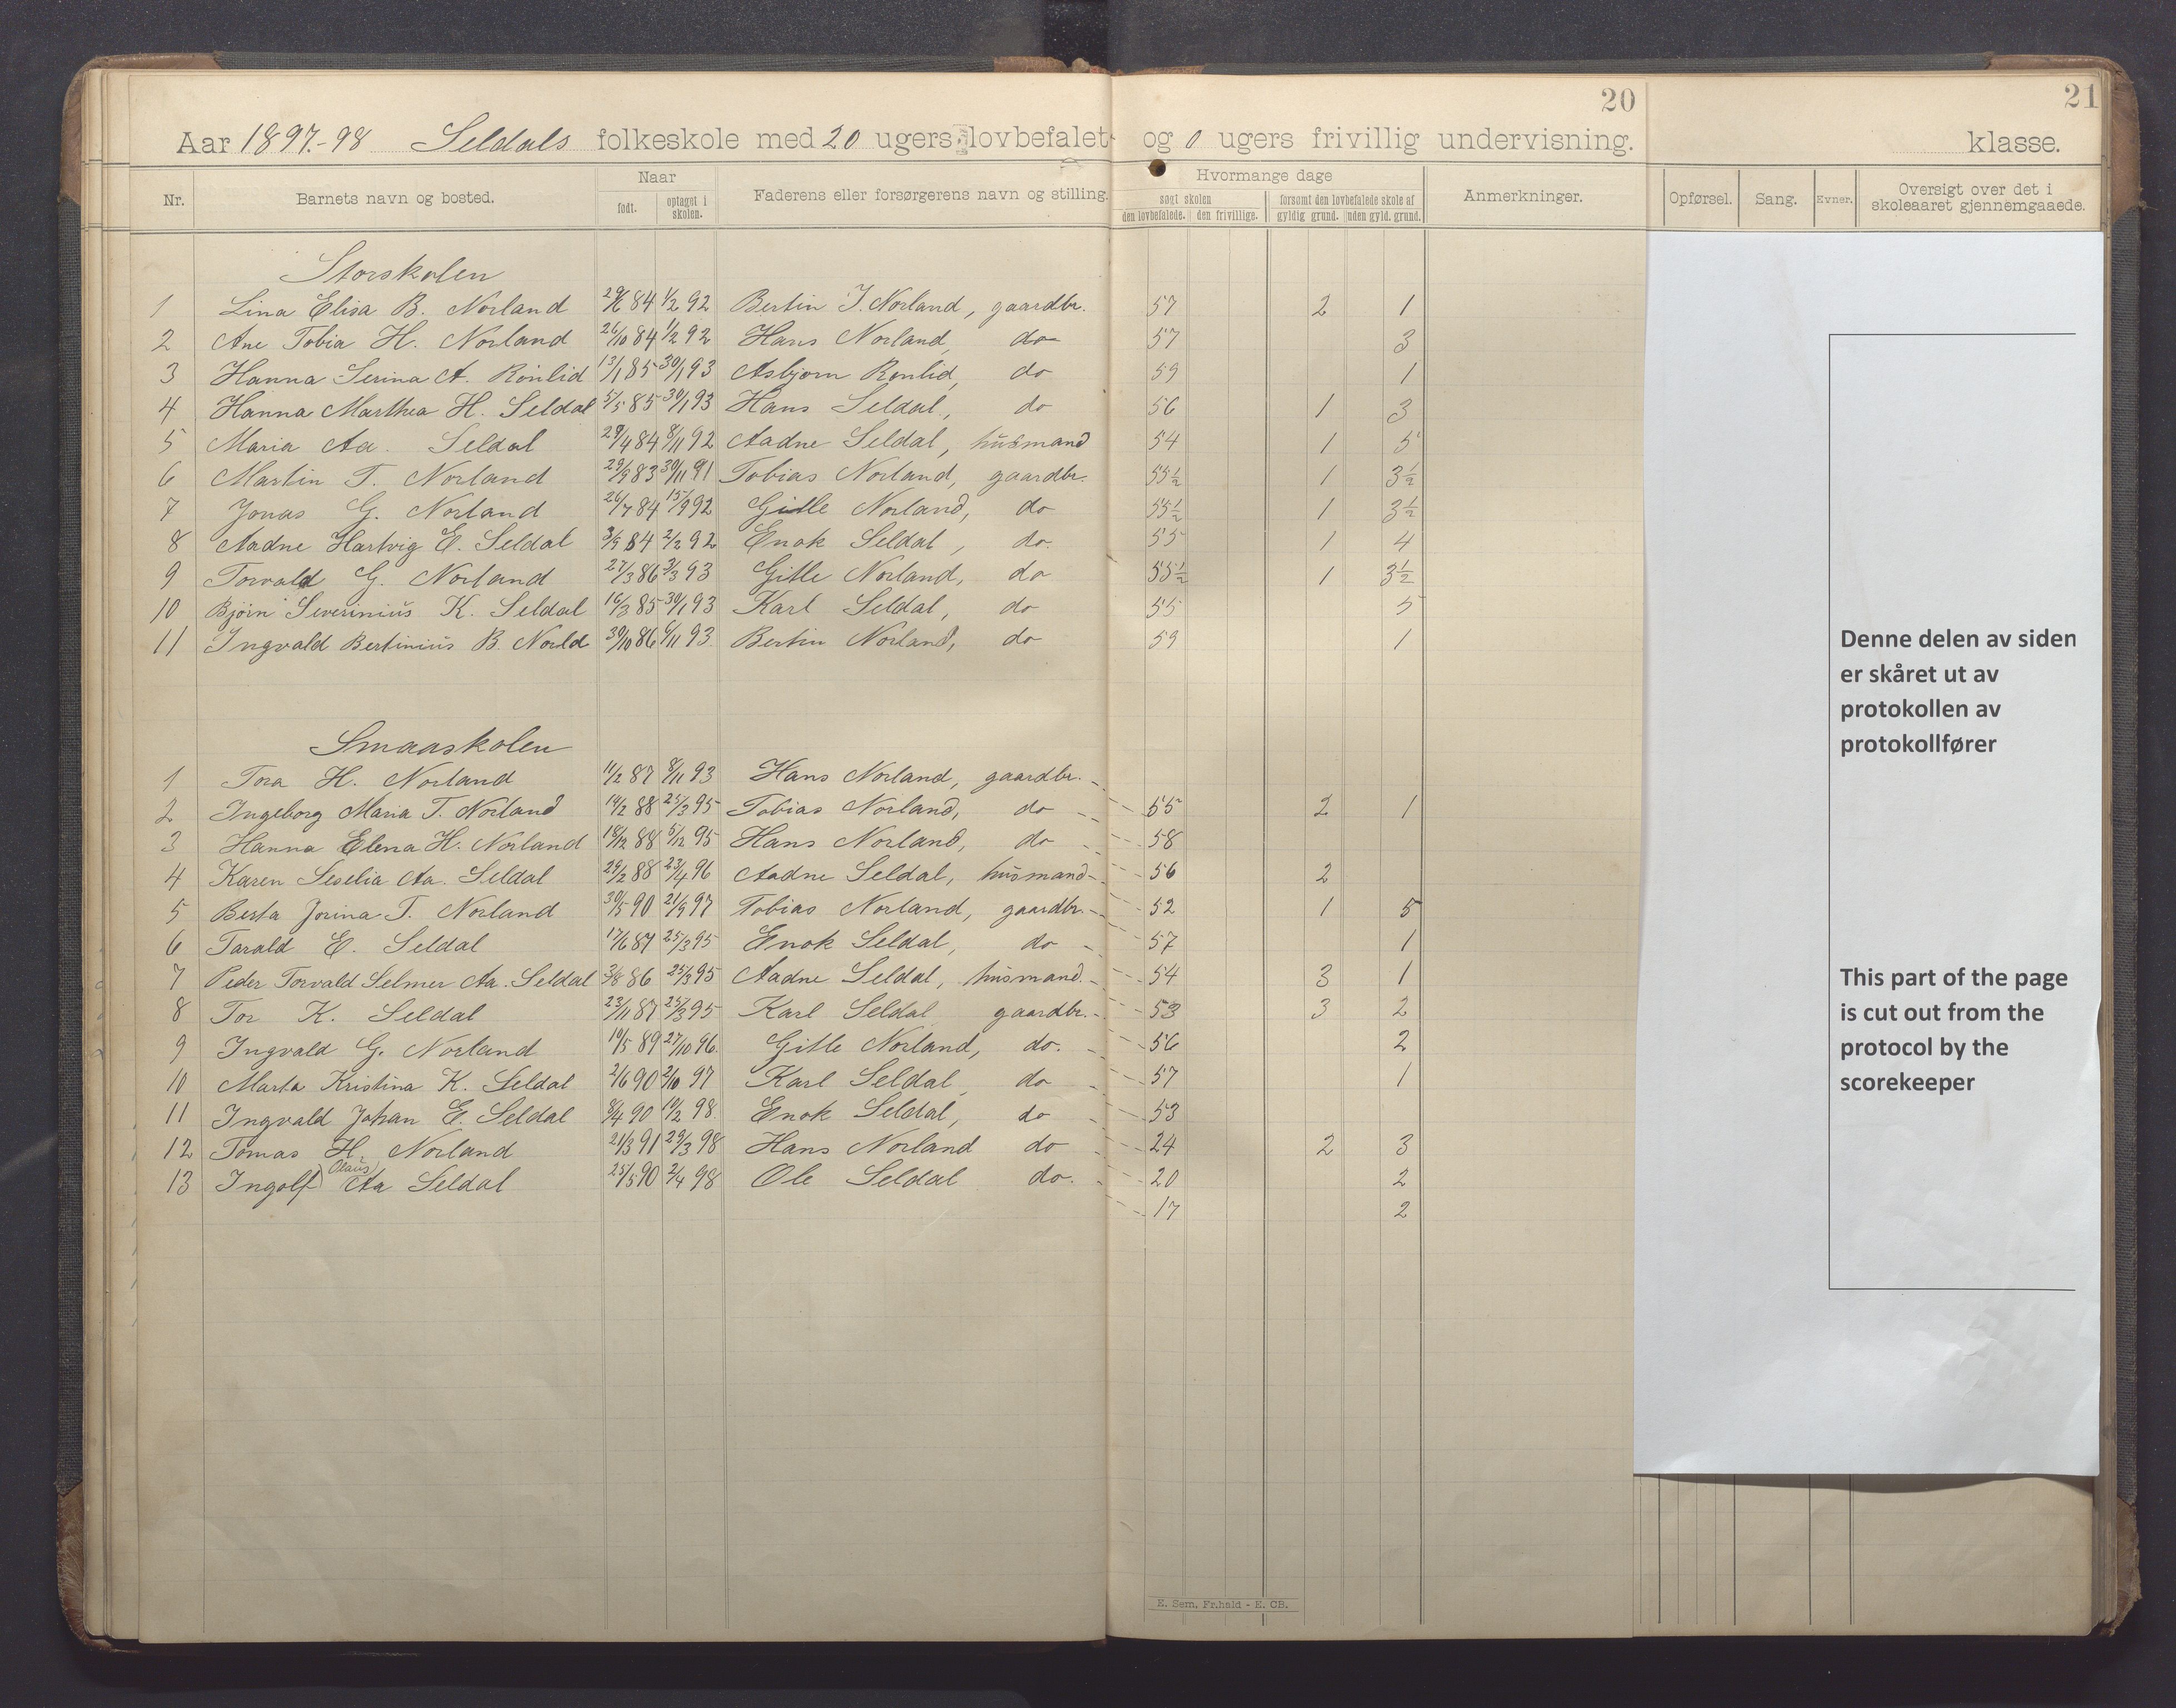 20
21
Aar 1897.-98 Seldals folkeskole med 20 ugers lovbefalet og 0 ugers frivillig undervisning.
klasse.
Nr. Barnets navn og bosted. Naar født. optaget i skolen. Faderens eller forsørgerens navn og stilling. Hvormange dage søgt skolen den lovbefalede. den frivillige. forsømt den lovbefalede skole af gyldig grund. uden gyld. grund. Anmerkninger. Opførsel. Sang. Evner. Oversigt over det i skoleaaret gjennemgaaede.
Storskolen
1 Lina Elisa B. Norland 84 1/2 92 Bertin J. Norland, gaardbr. 57 2 1
2 Ane Tobia H. Norland 26/10 84 1/2 92 Hans Norland do 57 3
3 Hanna Serina A. Rönlid 13/1 85 30/1 93 Asbjørn Rønlid, do 59 1
4 Hanna Marthea H. Seldal 5/5 85 30/1 93 Hans Seldal, do 56 1 3
5 Maria Aa. Seldal 29/4 84 8/11 92 Aadne Seldal, husmand 54 1 5
6 Martin T. Norland 29/9 83 30/11 91 Tobias Norland, gaardbr. 55½ 1 3½
7 Jonas G. Norland 26/7 84 15/9 92 Gitle Norland, do 55½ 1 3½
8 Aadne Hartvig E. Seldal 3/9 84 2/2 92 Enok Seldal, do. 55 1 4
9 Torvald G. Norland 27/3 86 3/3 93 Gitle Norland, do 55½ 1 3½
10 Bjørn Severinius K. Seldal 16/3 85 30/1 93 Karl Seldal, do 55 5
11 Ingvald Bertinius B. Norld 30/10 86 6/11 93 Bertin Norland, do 59 1
Smaaskolen
1 Tora H. Norland 11/2 87 8/11 93 Hans Norland, gaardbr.
2 Ingeborg Maria T. Norland 14/2 88 25/3 95 Tobias Norland, do 55 2 1
3 Hanna Elena H. Norland 18/12 88 5/12 95 Hans Norland, do 58
4 Karen Seselia Aa. Seldal 29/2 88 23/4 96 Aadne Seldal, husmand 56 2
5 Berta Jorina T. Norland 30/5 90 21/9 97 Tobias Norland, gaardbr. 52 1 5
6 Tarald E. Seldal 17/6 87 25/3 95 Enok Seldal, do 57 1
7 Peder Torvald Selmer Aa. Seldal 3/8 86 25/3 95 Aadne Seldal, husmand. 54 3 1
8 Tor K. Seldal 23/11 87 25/3 95 Karl Seldal gaardbr. 53 3 2
9 Ingvald G. Norland 10/5 89 27/10 96. Gitle Norland, do. 56 2
10 Marta Kristina K. Seldal 2/6 90 2/10 97 Karl Seldal, do 57 1
11 Ingvald Johan E. Seldal 8/4 90 10/2 98. Enok Seldal, do 53
12 Tomas H. Norland 21/3 91 29/3 98 Hans Norland do 24 2 3
Olaus
13 Ingolf Aa Seldal 25/5 90 2/4 98 Ole Seldal do. 20 2
17 2
Denne delen av siden
er skåret ut av
protokollen av
protokollfører
This part of the page
is cut out from the
protocol by the
scorekeeper
E. Sem, Fr.hald - E. CB.